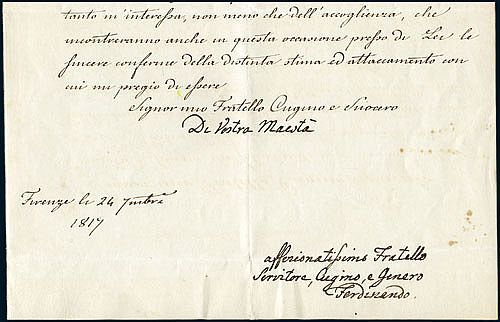 tanto m'interessa, non meno che dell'accoglienza, che
incontreranno anche in questa occasione presso di Lei le
sincere conferme della distinta stima ed attaccamento con
cui mi pregio di essere
Signor mio Fratello Cugino e Suocero
Di Vostra Maestà
Firenze li 24 7mbre
1817
affezionatissimo Fratello
Servitore, Cugino, e Genero
Ferdinando.